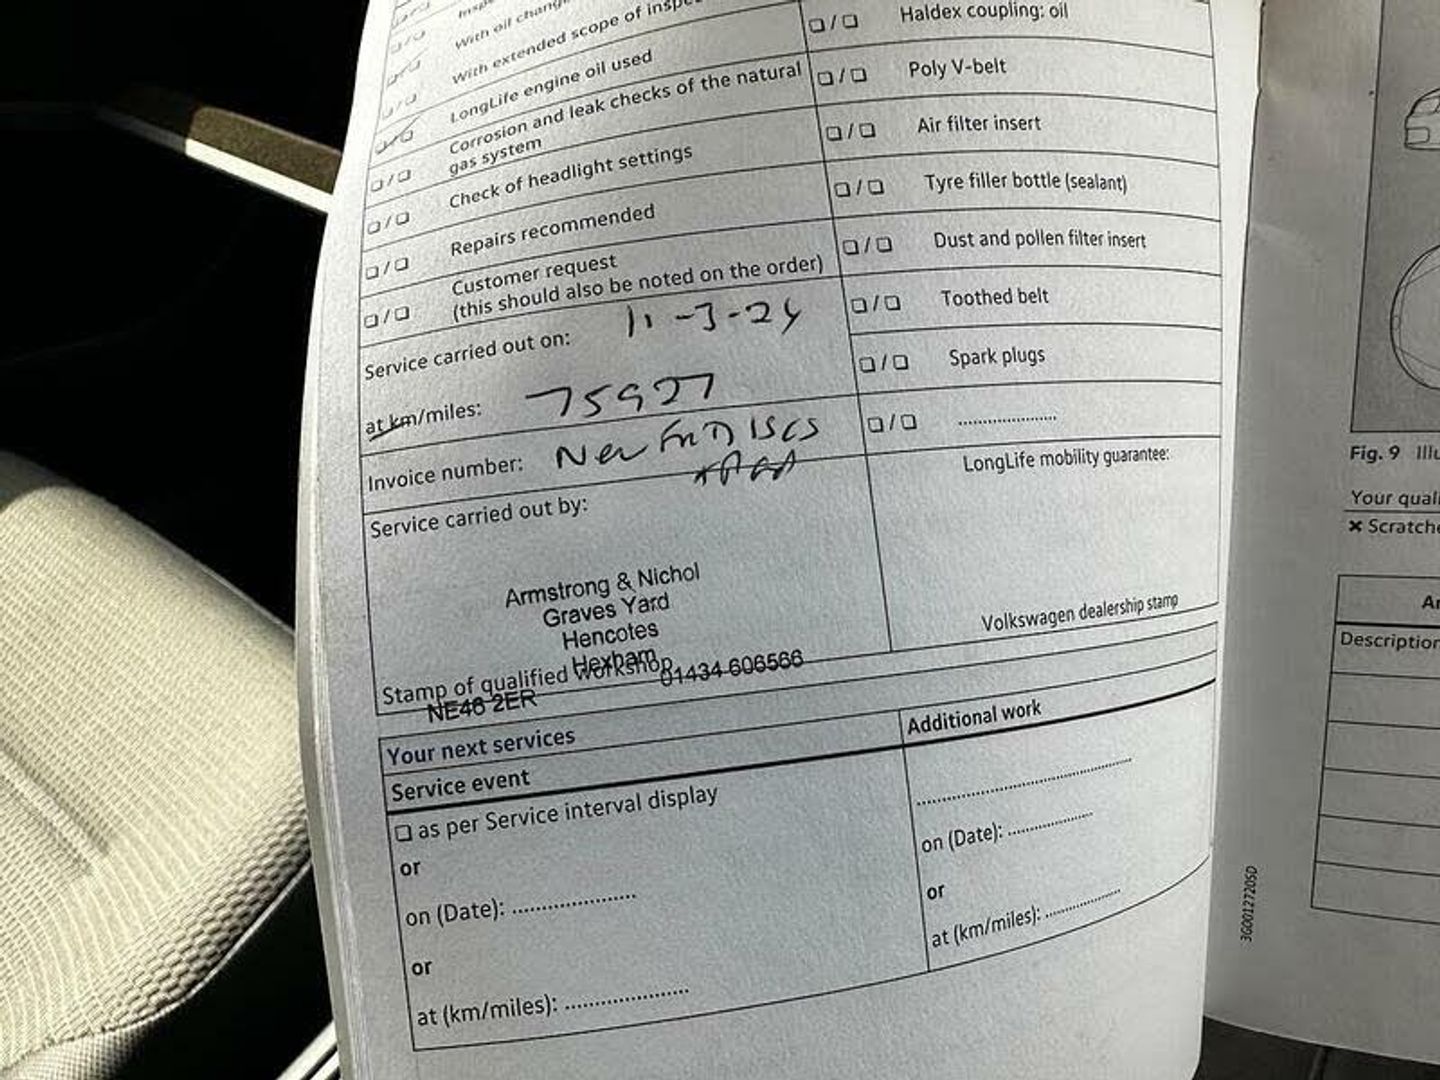 With oil chang
With extended scope of inspe
LongLife engine oil used
Corrosion and leak checks of the natural
gas system
Check of headlight settings
Repairs recommended
Customer request
(this should also be noted on the order)
Service carried out on: 11-3-24
at km/miles: 75927
Invoice number: New FnT DISCS
Service carried out by:
Armstrong & Nichol
Graves Yard
Hencotes
Hexham
Stamp of qualified workshop 01434 606566
NE46 2ER
Haldex coupling: oil
Poly V-belt
Air filter insert
Tyre filler bottle (sealant)
Dust and pollen filter insert
Toothed belt
Spark plugs
....................
LongLife mobility guarantee:
Volkswagen dealership stamp
Your next services
Service event
as per Service interval display
or
on (Date): ....................
or
at (km/miles): ....................
Additional work
....................
on (Date): ....................
or
at (km/miles): ....................
3G0012720SD
Fig. 9 Illu
Your quali
× Scratche
Description